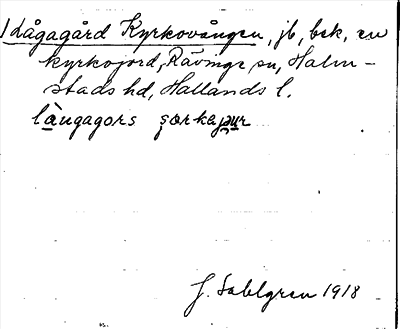 Lågagård Kyrkovången, jb, bek, en
kyrkojord, Rävinge sn, Halm-
stads hd, Hallands l.
làngagors
J. Sahlgren 1918